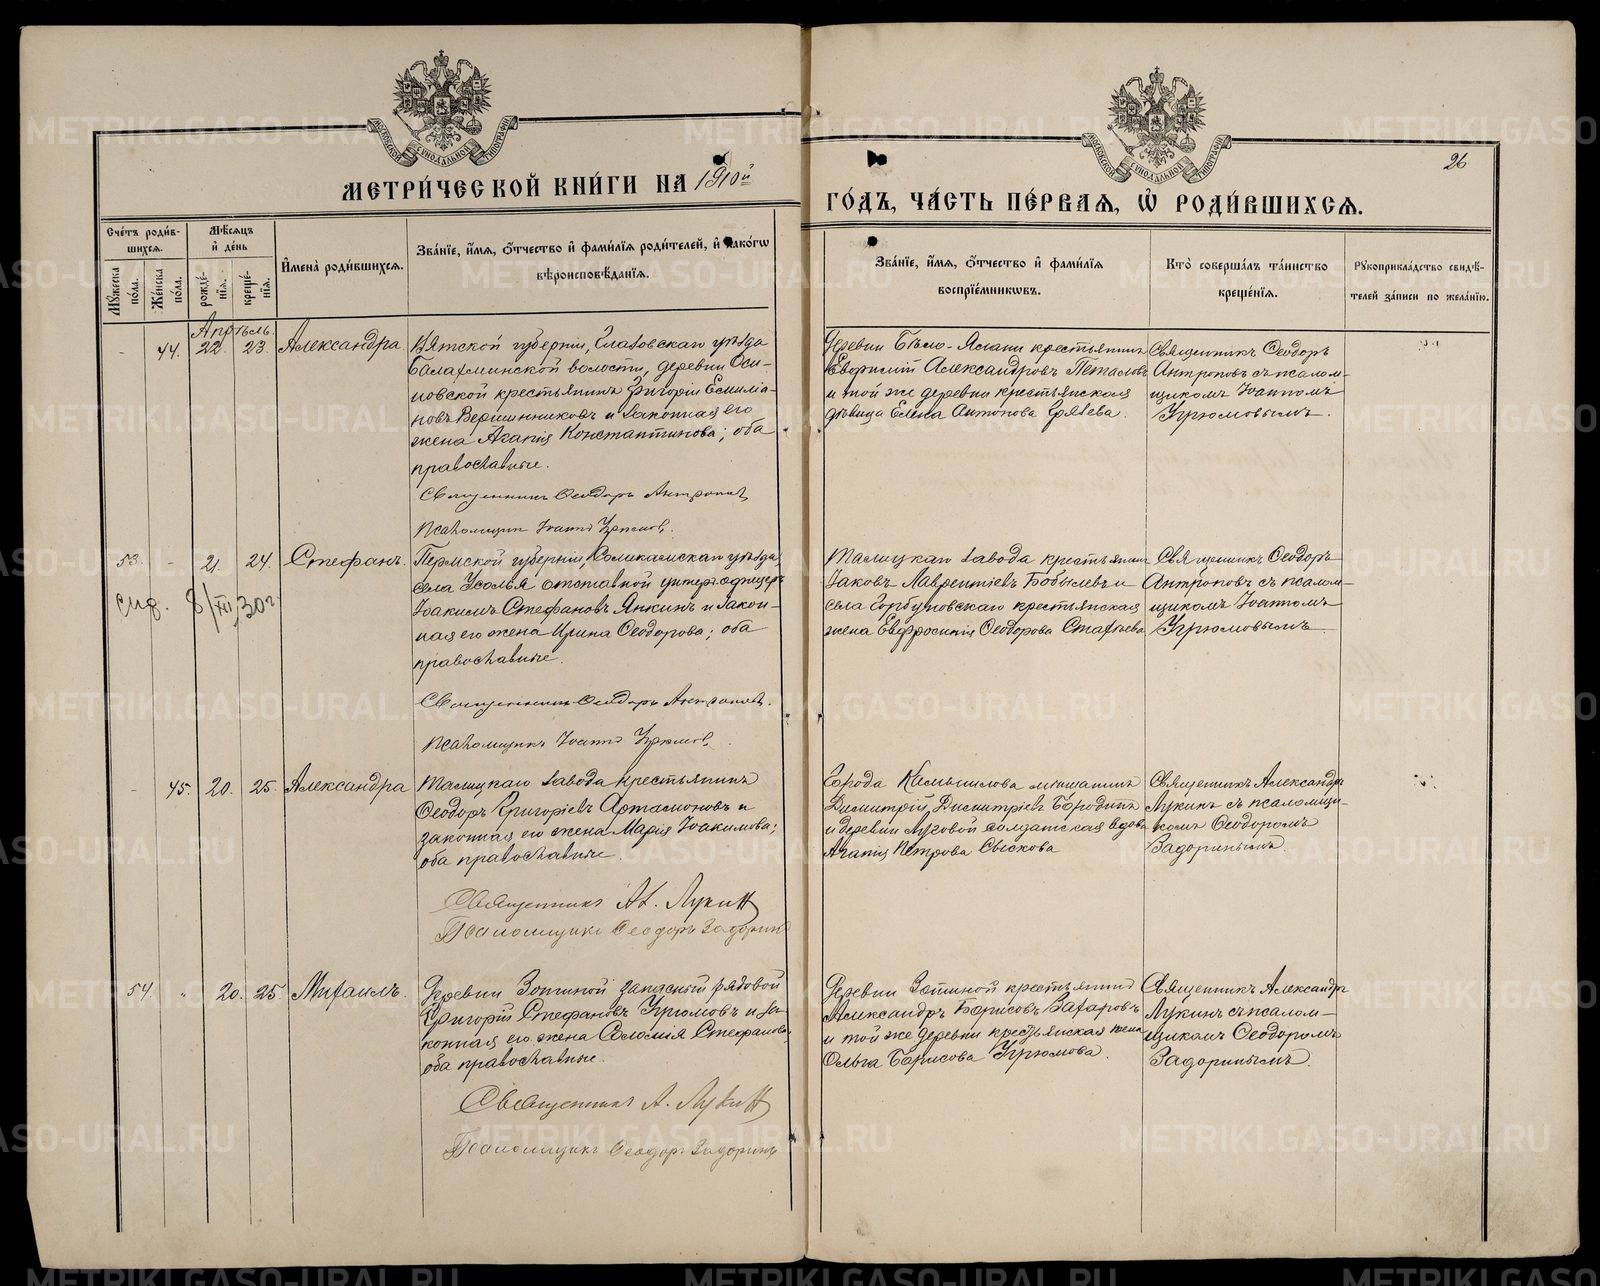 МОСКОВСКОЙ СѴНОДАЛЬНОЙ ТИПОГРАФІИ
МОСКОВСКОЙ СѴНОДАЛЬНОЙ ТИПОГРАФІИ
26
МЕТРИ́ЧЕСКОЙ КНИ́ГИ НА 1910й
ГО́ДЪ, ЧА́СТЬ ПЕ́РВАѦ, Ѡ҆ РОДИ́ВШИХСѦ.
Сче́тъ роди́в-
шихсѧ.
Мꙋ́жеска по́ла.
Же́нска по́ла.
Мѣ́сѧцъ
и҆ де́нь
рожде́-
нїѧ.
креще́-
нїѧ.
И҆мена̀ роди́вшихсѧ.
Зва́нїе, и҆́мѧ, ѻ҆́тчество и҆ фами́лїѧ роди́телей, и҆ како́гѡ
вѣроисповѣ́данїѧ.
Зва́нїе, и҆́мѧ, ѻ҆́тчество и҆ фами́лїѧ
воспрїе́мникѡвъ.
Кто̀ соверша́лъ та́инство
креще́нїѧ.
Рꙋкоприкла́дство свидѣ́-
телей за́писи по жела́нїю.
Апрѣль.
- 44. 22. 23. Александра
Вятской губерніи, Глазовскаго уѣзда
Балахминской волости, деревни Оси-
новской крестьянинъ Григорій Емилiа-
новъ Вершинниковъ и законная его
жена Агапія Константинова; оба
православные.
Священникъ Ѳеодоръ Антроповъ
Псаломщикъ Іоаннъ Угрюмовъ.
Деревни Бѣло-Ялани крестьянинъ
Евѳимій Александровъ Петаловъ
и той же деревни крестьянская
дѣвица Елена Антонова
Священникъ Ѳеодоръ
Антроповъ съ псалом-
щикомъ Іоанномъ
Угрюмовымъ.
53. - 21. 24. Стефанъ.
8/XII 30 г
Пермской губерніи, Соликамскаго уѣзда
села Усолья отставной унтеръ-офицеръ
Іоакимъ Стефановъ Янкинъ и закон-
ная его жена Ирина Ѳеодорова; оба
православные.
Священникъ Ѳеодоръ Антроповъ.
Псаломщикъ Іоаннъ Угрюмовъ.
Талицкаго завода крестьянинъ
Іаковъ Лаврентіевъ Бобылевъ и
села Горбуновскаго крестьянская
жена Евфросинія Ѳеодорова Статьева
Священникъ Ѳеодоръ
Антроповъ съ псалом-
щикомъ Іоанномъ
Угрюмовымъ.
- 45. 20. 25. Александра
Талицкаго завода крестьянинъ
Ѳеодоръ Григоріевъ Артамоновъ и
законная его жена Марія Іоакимова;
оба православные.
Священникъ Ал. Лукинъ
Псаломщикъ Ѳеодоръ Задоринъ
Города Камышлова мѣщанинъ
Димитрій Димитріевъ Бородинъ
и деревни Луговой солдатская вдова
Агапія Петрова Сыскова
Священникъ Александръ
Лукинъ съ псаломщи-
комъ Ѳеодоромъ
Задоринымъ.
54. „ 20. 25. Михаилъ.
Деревни Зотиной запасный рядовой
Григорій Стефановъ Угрюмовъ и за-
конная его жена Соломія Стефанова
оба православные.
Священникъ А. Лукинъ
Псаломщикъ Ѳеодоръ Задоринъ
Деревни Зотиной крестьянинъ
Александръ Борисовъ Захаровъ
и той же деревни крестьянская жена
Ольга Борисова Угрюмова.
Священникъ Александръ
Лукинъ съ псалом-
щикомъ Ѳеодоромъ
Задоринымъ.
METRIKI.GASO-URAL.RU